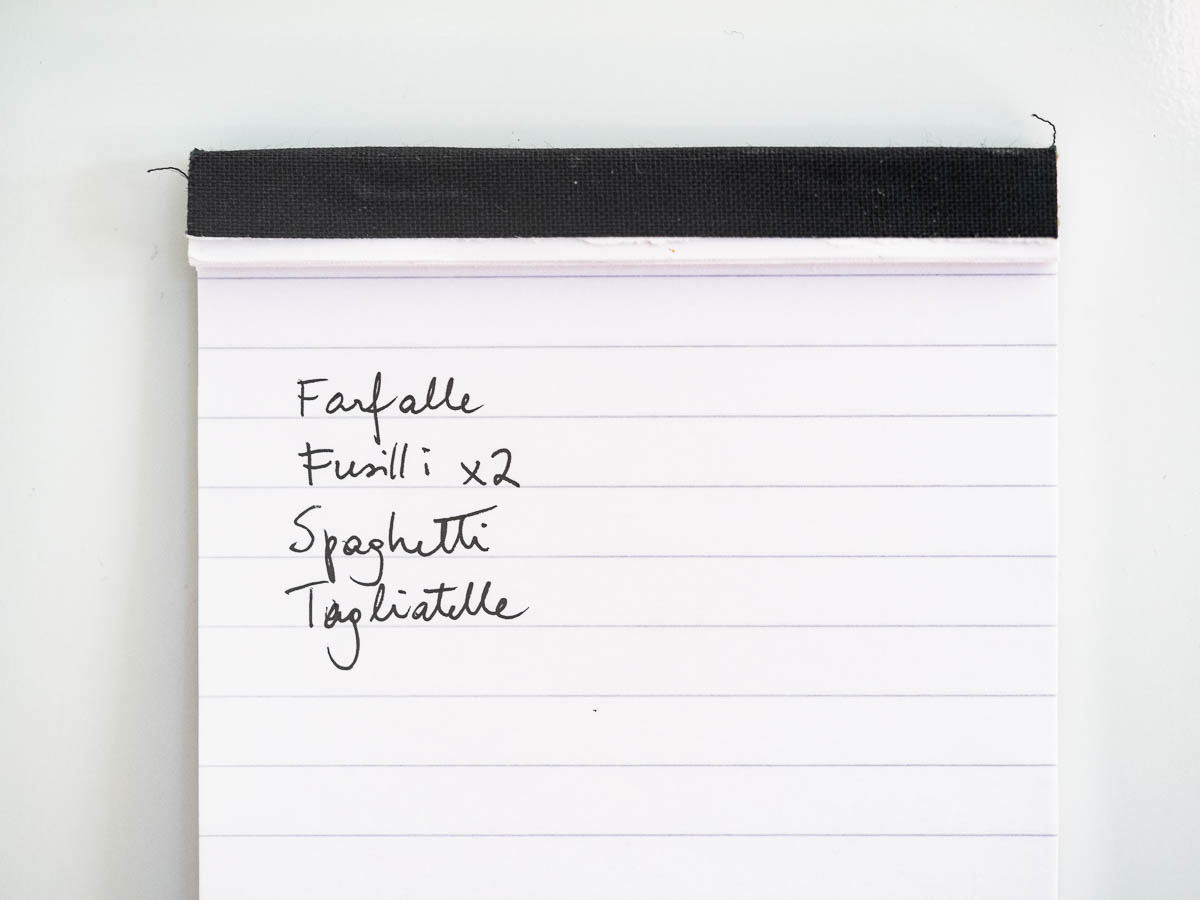 Farfalle
Fusilli x2
Spaghetti
Tagliatelle